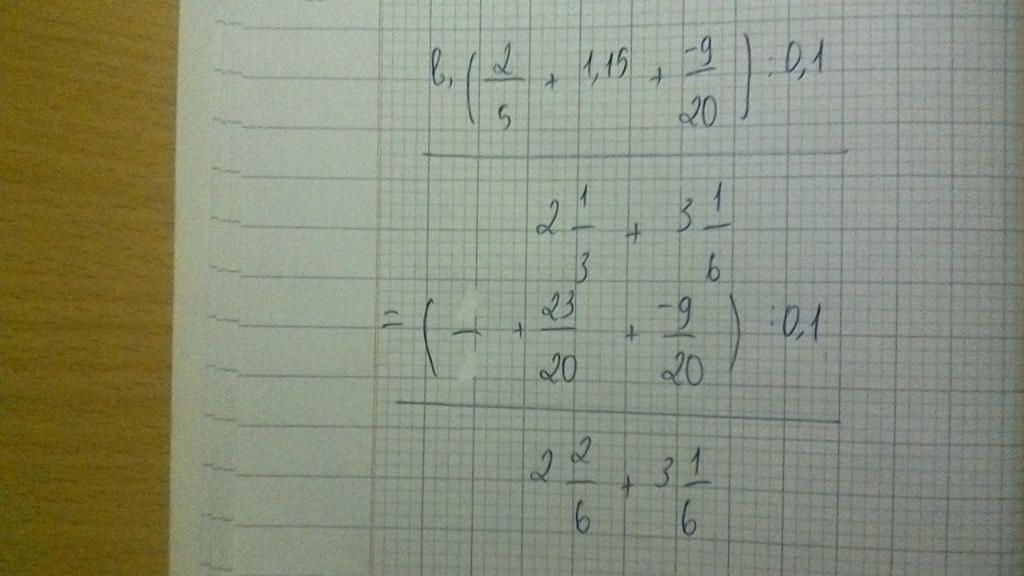 в, (2/5 + 1,15 + -9/20) : 0,1
2 1/3 + 3 1/6
= ( — + 23/20 + -9/20) : 0,1
2 2/6 + 3 1/6